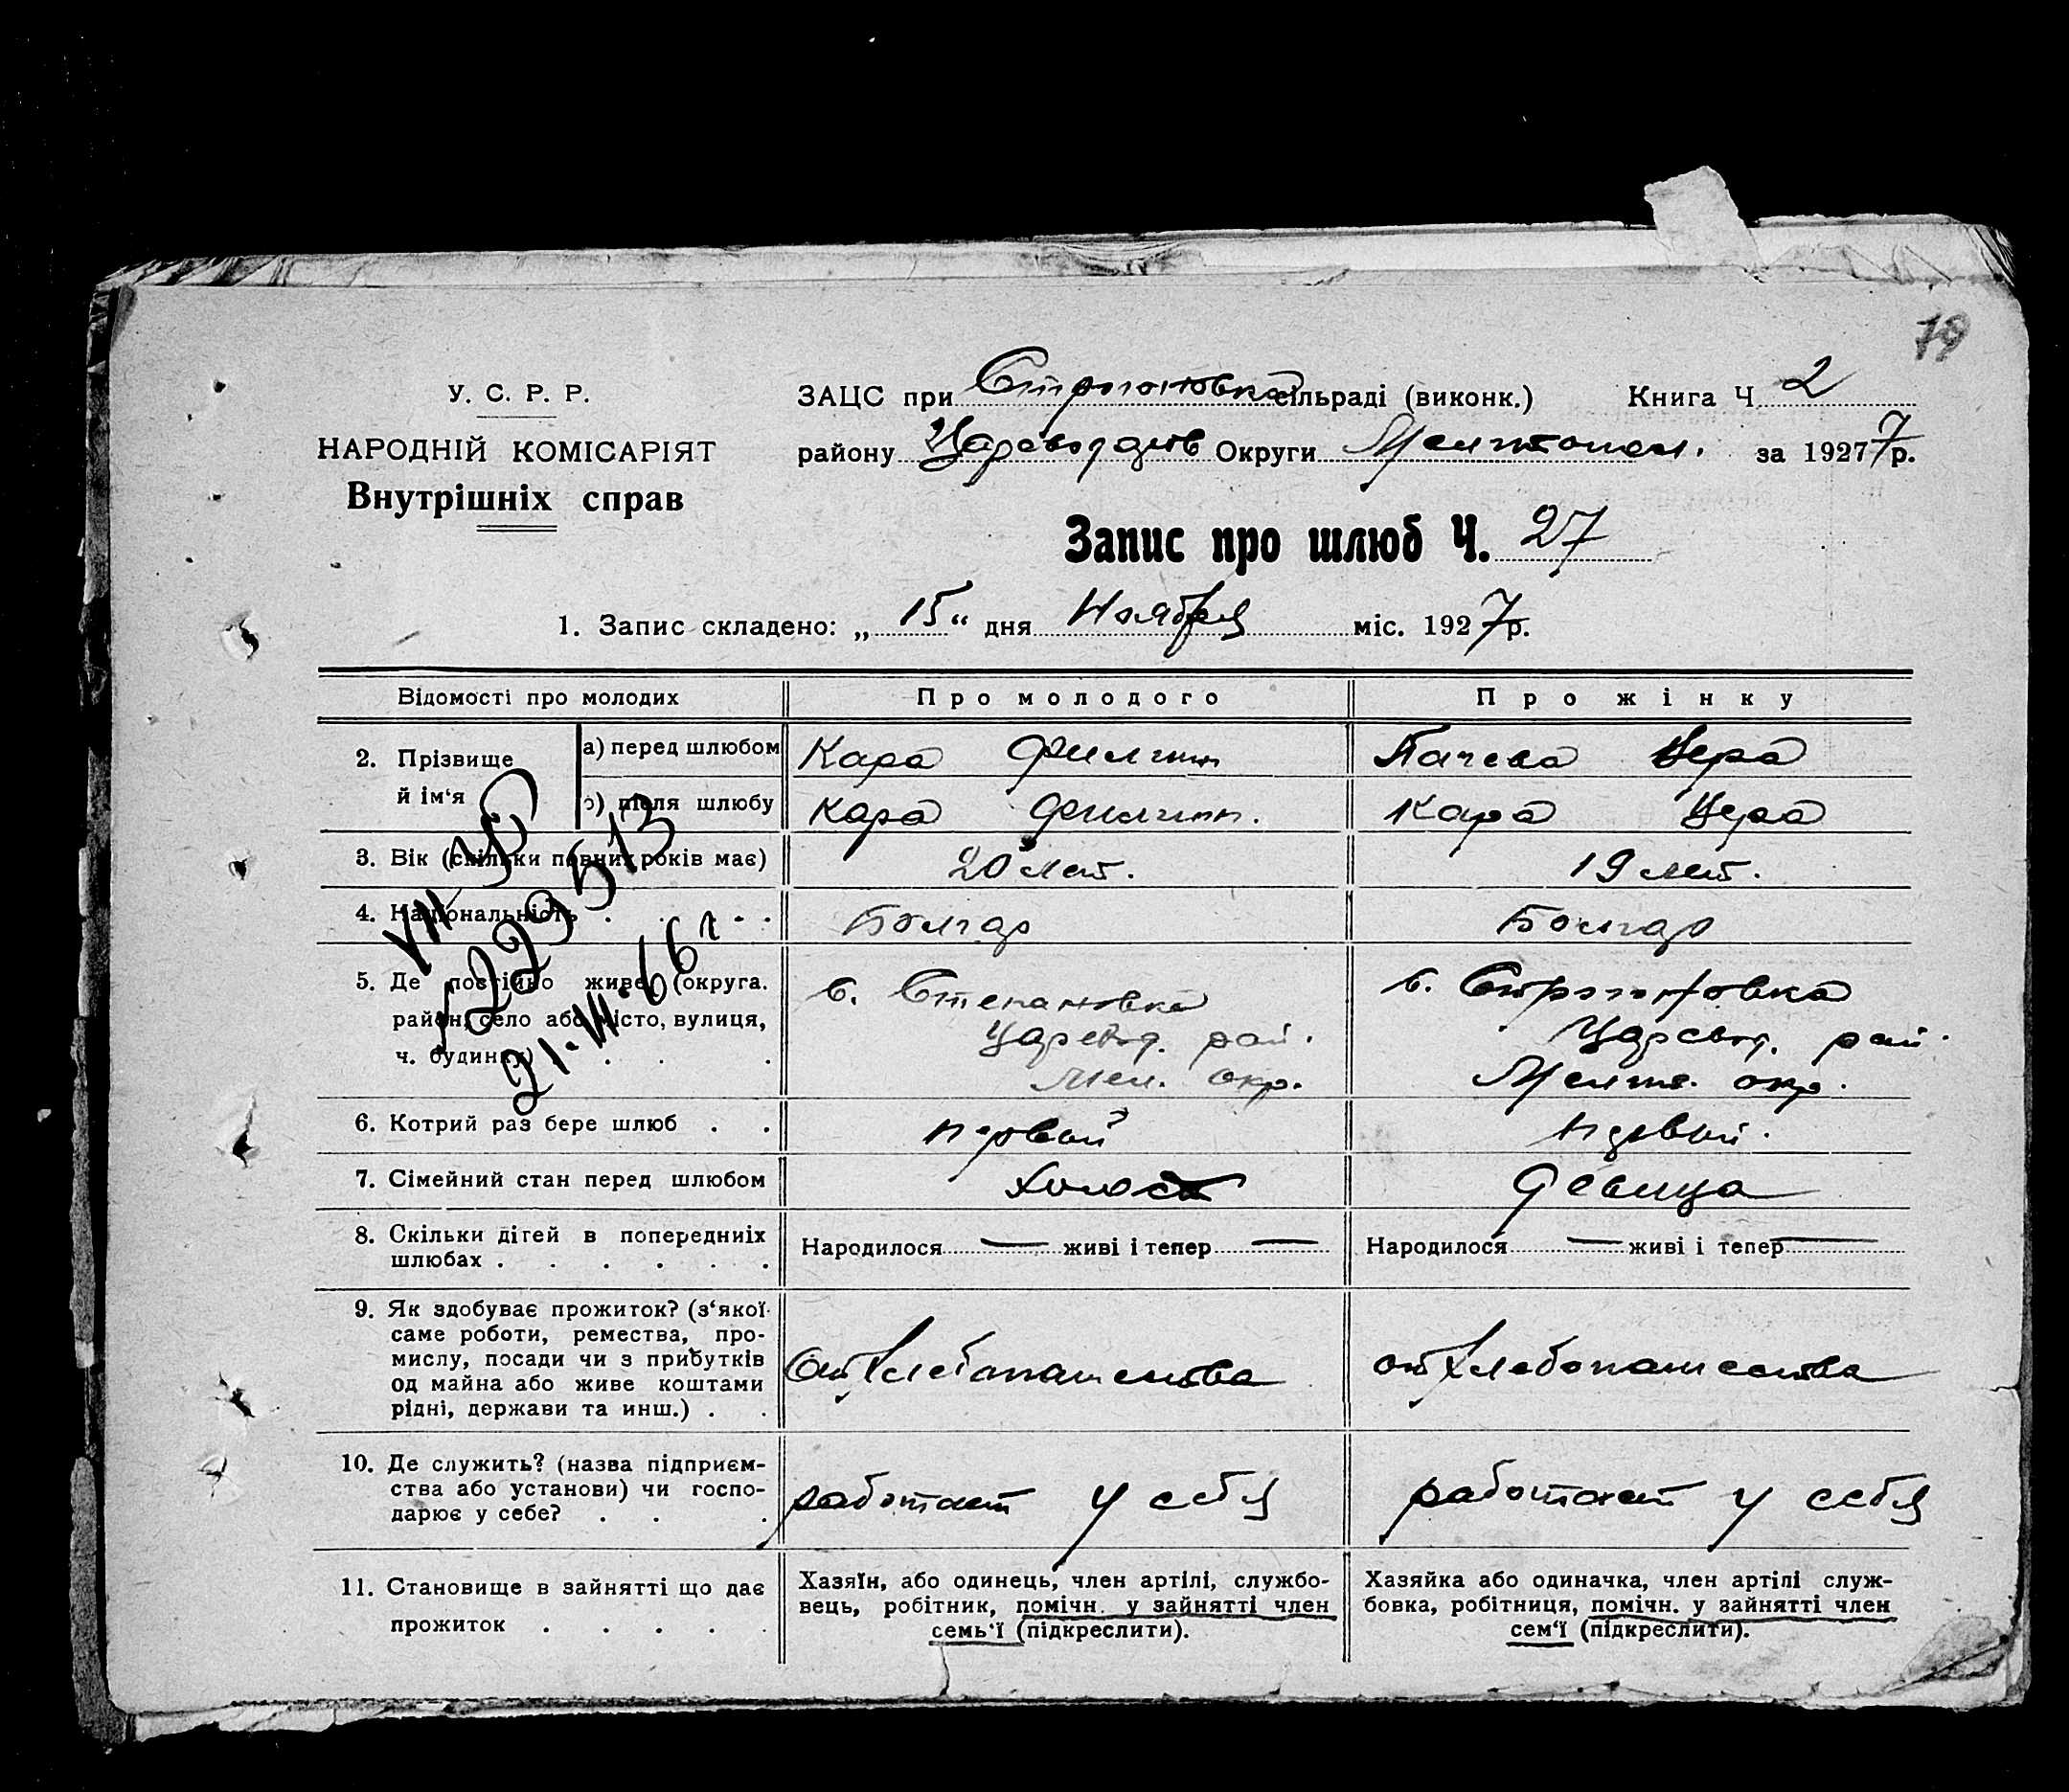 79
У. С. Р. Р.
НАРОДНІЙ КОМІСАРІЯТ
Внутрішніх справ
ЗАЦС при Строгоновка сільраді (виконк.) Книга Ч 2
району Цареводців Округи Мелитопол. за 1927 7 р.
Запис про шлюб Ч. 27
1. Запис складено: „ 15 “ дня Ноября міс. 1927 р.
Відомості про молодих Про молодого Про жінку
2. Прізвище й ім‘я
а) перед шлюбом Кара Филипп Пачева Вера
б) після шлюбу Кара Филипп. Кара Вера
3. Вік (скільки повних років має) 20 лет. 19 лет.
4. Національність Болгар Болгар
5. Де постійно живе (округа.
район, село або місто, вулиця,
ч. будинку)
с. Степановка
Царевод. рай.
Мел. окр.
с. Строгоновка
Царевод. рай.
Мелит. окр.
VII ЯР
1229513
21.III.66 г.
6. Котрий раз бере шлюб первый первый.
7. Сімейний стан перед шлюбом холост девица
8. Скільки дітей в попередніх
шлюбах
Народилося — живі і тепер — Народилося — живі і тепер —
9. Як здобуває прожиток? (з‘якої
саме роботи, ремества, про-
мислу, посади чи з прибутків
од майна або живе коштами
рідні, держави та инш.)
От хлебопашества от хлебопашества
10. Де служить? (назва підприєм-
ства або установи) чи госпо-
дарює у себе?
работает у себя работает у себя
11. Становище в зайнятті що дає
прожиток
Хазяїн, або одинець, член артілі, службо-
вець, робітник, помічн. у зайнятті член
семь‘ї (підкреслити).
Хазяйка або одиначка, член артілі служ-
бовка, робітниця, помічн. у зайнятті член
сем‘ї (підкреслити).